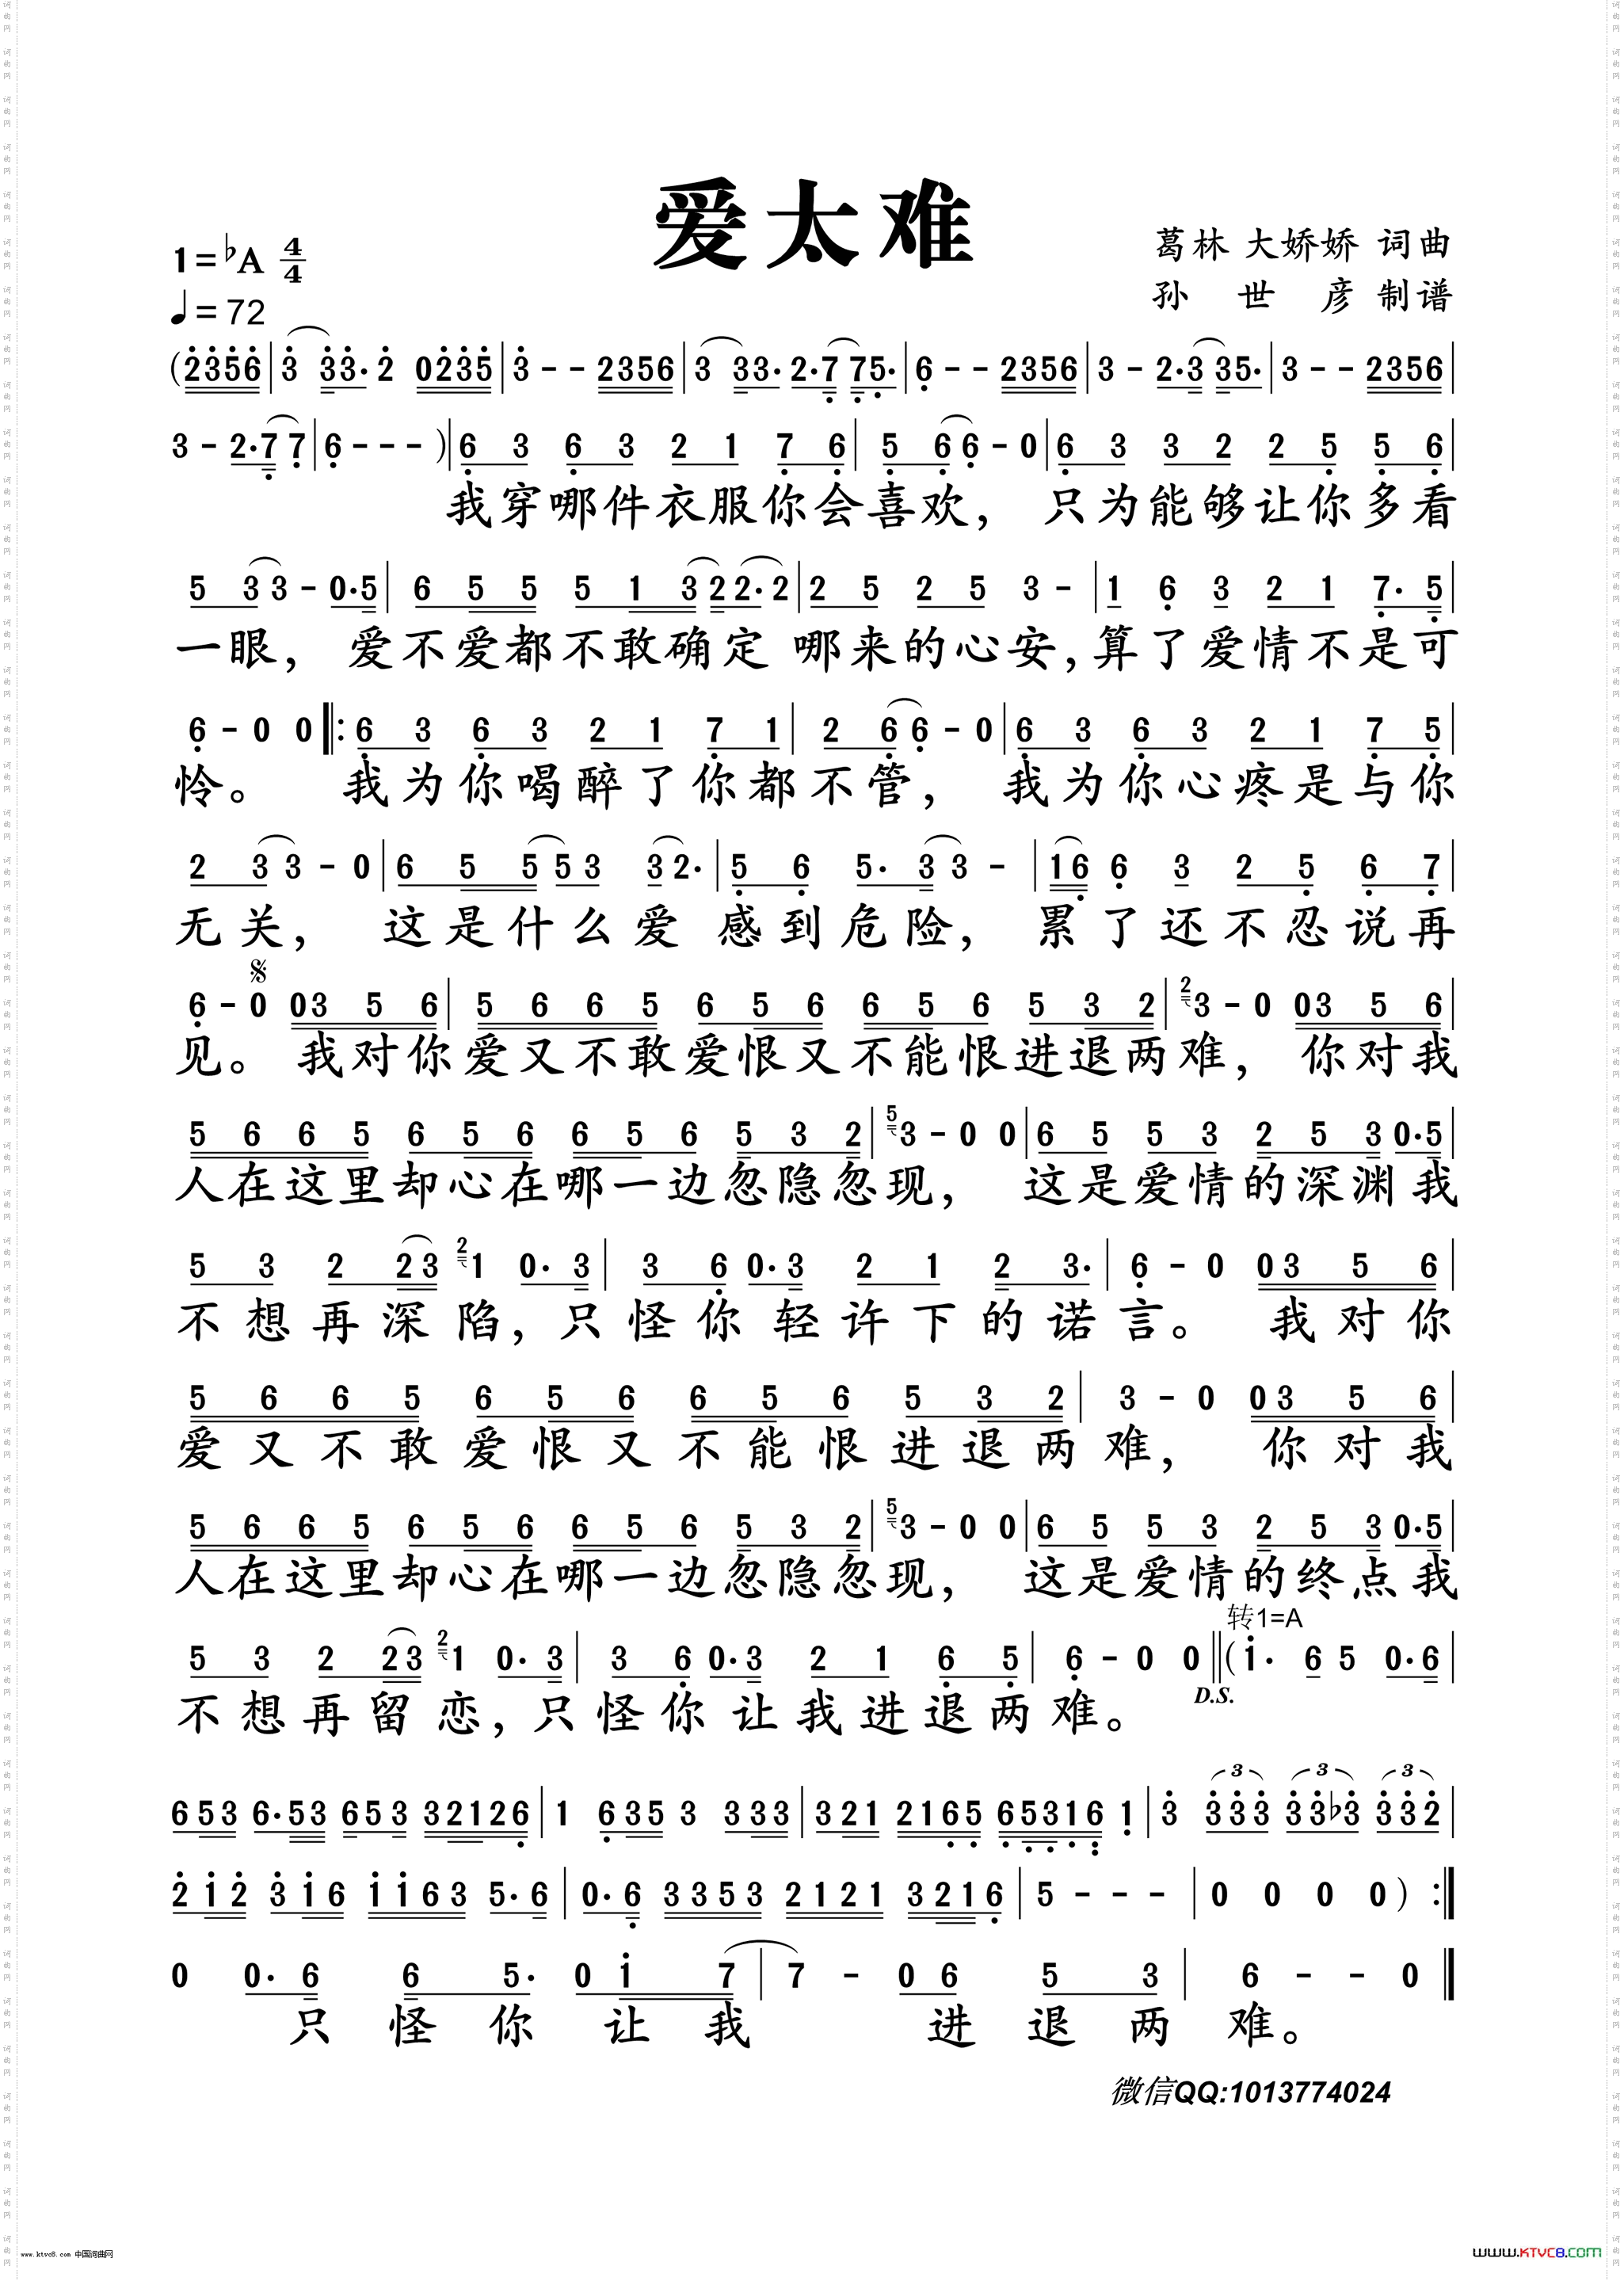 爱太难
1=♭A 4/4
葛林 大娇娇 词曲
♩=72
孙世彦 制谱
(2356|3 33·2 0235|3--2356|3 33·2·7 75·|6--2356|3-2·3 35·|3--2356|
3-2·7 7|6---)|6 3 6 3 2 1 7 6|5 6 6-0|6 3 3 2 2 5 5 6|
我穿哪件衣服你会喜欢，只为能够让你多看
5 3 3-0·5|6 5 5 5 1 3 2 2·2|2 5 2 5 3-|1 6 3 2 1 7·5|
一眼，爱不爱都不敢确定哪来的心安，算了爱情不是可
6-0 0‖:6 3 6 3 2 1 7 1|2 6 6-0|6 3 6 3 2 1 7 5|
怜。我为你喝醉了你都不管，我为你心疼是与你
2 3 3-0|6 5 5 5 3 3 2·|5 6 5·3 3-|1 6 6 3 2 5 6 7|
无关，这是什么爱感到危险，累了还不忍说再
6-0 03 5 6|5 6 6 5 6 5 6 6 5 6 5 3 2|2 3-0 03 5 6|
见。我对你爱又不敢爱恨又不能恨进退两难，你对我
5 6 6 5 6 5 6 6 5 6 5 3 2|5 3-0 0|6 5 5 3 2 5 3 0·5|
人在这里却心在哪一边忽隐忽现，这是爱情的深渊我
5 3 2 2 3 2 1 0·3|3 6 0·3 2 1 2 3·|6-0 03 5 6|
不想再深陷，只怪你轻许下的诺言。我对你
5 6 6 5 6 5 6 6 5 6 5 3 2|3-0 03 5 6|
爱又不敢爱恨又不能恨进退两难，你对我
5 6 6 5 6 5 6 6 5 6 5 3 2|5 3-0 0|6 5 5 3 2 5 3 0·5|
人在这里却心在哪一边忽隐忽现，这是爱情的终点我
转1=A
5 3 2 2 3 2 1 0·3|3 6 0·3 2 1 6 5|6-0 0‖(1·6 5 0·6|
D.S.
不想再留恋，只怪你让我进退两难。
653 6·53 653 32126|1 635 3 333|321 2165 65316 1|3 333 33♭3 332|
212 316 1163 5·6|0·6 3353 2121 3216|5---|0 0 0 0):‖
0 0·6 6 5·0 1 7|7-0 6 5 3|6--0‖
只怪你让我进退两难。
微信QQ:1013774024
www.ktvc8.com 中国词曲网
www.KTVC8.COM